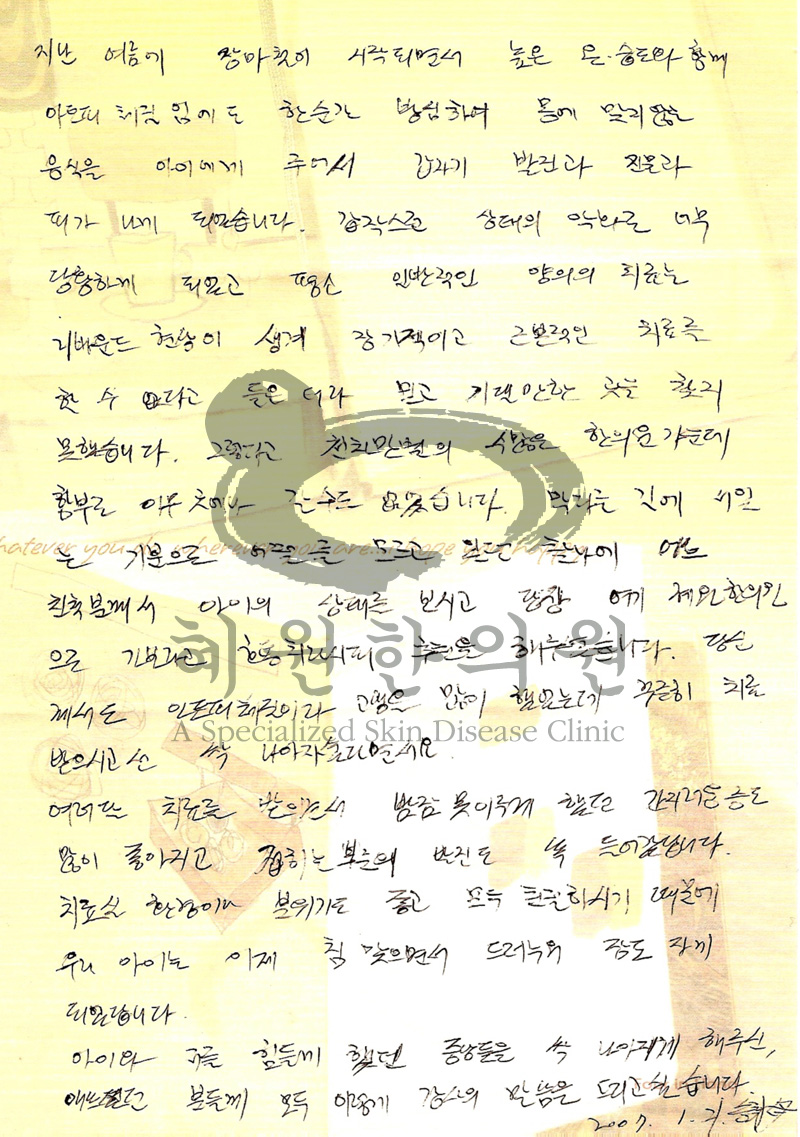 지난 여름에 장마철이 시작되면서 높은 온·습도와 함께
아토피 체질임에도 한순간 방심하여 몸에 맞지않는
음식을 아이에게 주어서 갑자기 발진과 진물과
피가 나게 되었습니다. 갑작스런 상태의 악화로 너무
당황하게 되었고 평소 일반적인 양의의 치료는
리바운드 현상이 생겨 장기적이고 근본적인 치료를
할 수 없다고 들은 터라 믿고 기댈만한 곳을 찾지
못했습니다. 그렇다고 천차만별의 수많은 한의원 가운데
함부로 아무 곳에나 갈수도 없었습니다. 막다른 길에
기분으로 모르고 있던 찰나에
친척분께서 아이의 상태를 보시고 당장 여기 혜원한의원
으로 가보라고 추천을 해주셨습니다. 당신
께서도 아토피체질이라 고생을 많이 했었는데 꾸준히 치료
받으시고선 싹 나아지셨다면서요.
여러번 치료를 받으면서 밤잠 못이루게 했던 간지러운 증도
많이 좋아지고 접히는 부분의 반진도 쏙 들어갔답니다.
치료실 환경이나 분위기도 좋고 모두 친절하시기 때문에
우리 아이는 이제 침 맞으면서 드러누워 잠도 자게
되었답니다.
아이와 저를 힘들게 했던 증상들을 싹 나아지게 해주신,
애쓰셨던 분들께 모두 이렇게 감사의 말씀을 드리고싶습니다.
2007. 1.
혜원한의원
A Specialized Skin Disease Clinic